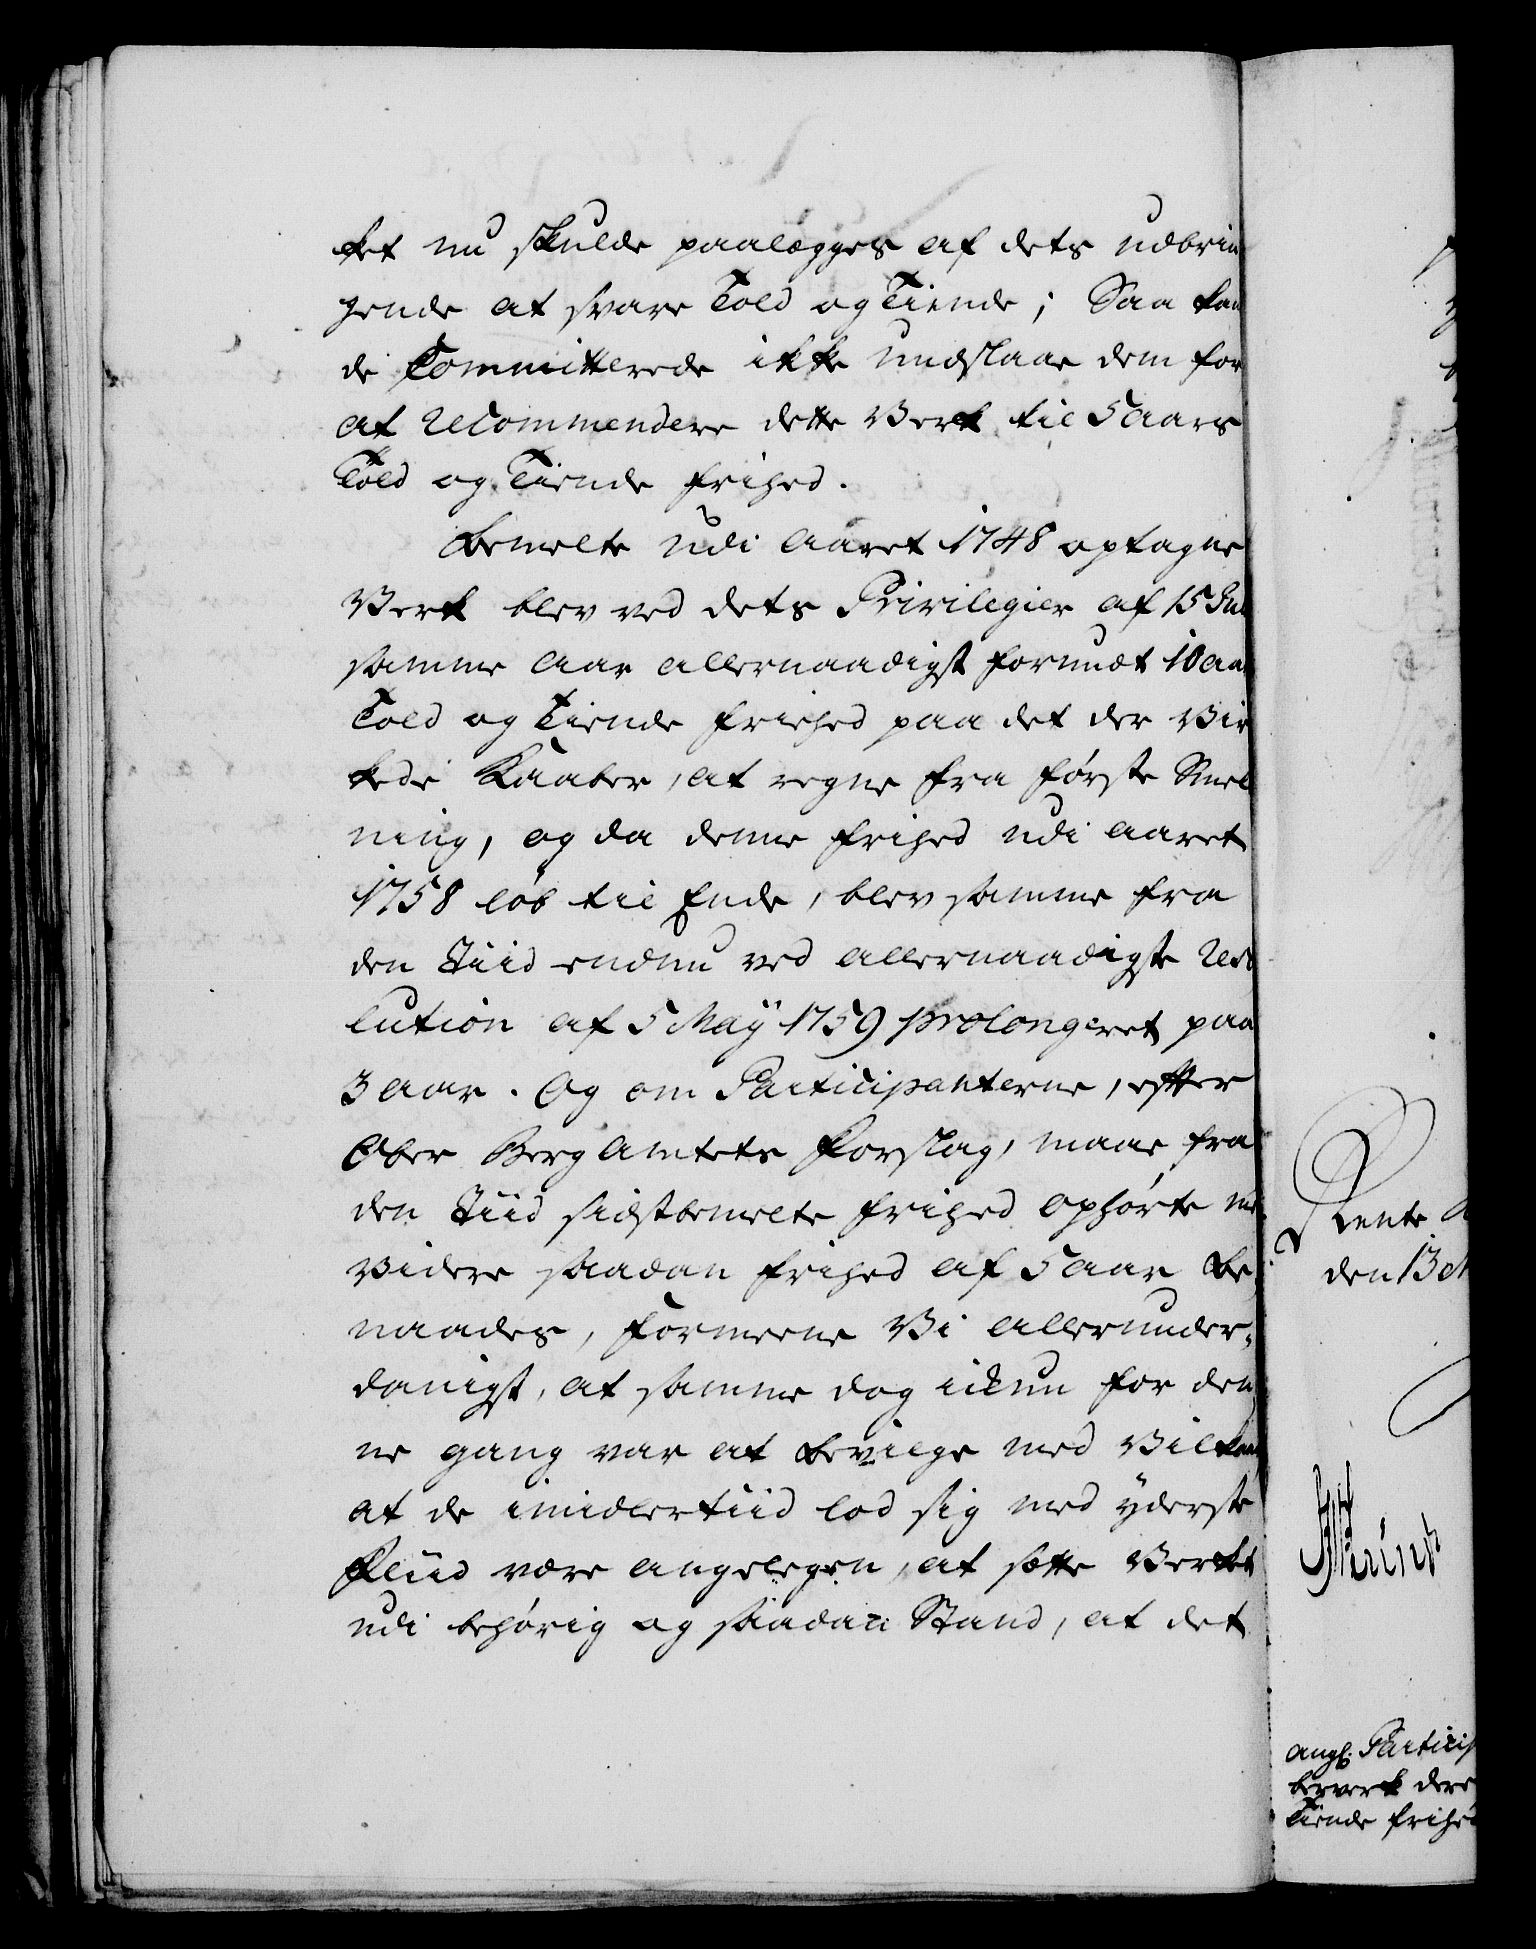 ket nu skulde paalægges af dets udbrin
gende at svare Told og Tiende; Saa kan
de Committerede ikke undslaae dem for
at Recommendere dette Verk til 5 Aars
Told og Tiende frihed.
Bemelte udi Aaret 1748 optagne
Verk blev ved dets Privilegier af 15 Jul
samme Aar allernaadigst forundt 10 aa
Told og Tiende friehed paa det der Vir
kede Kaaber, at regne fra første Smel
ning, og da denne frihed udi Aaret
1758 løb til Ende, blev samme fra
den Tiid endnu ved allernaadigste Reso
lution af 5 Maÿ 1759 prolongeret paa
3 aar. Og om Participanterne, efter
Ober Berg Amtets Forslag, maae fra
den Tiid sidstbemelte frihed ophørte
Videre saadan frihed af 5 aar be
naades, formeene Vi allerunder-
danigst, at samme dog ickun for den
ne gang var at bevilge med Vilkaar
at de imidlertiid lod sig med yderste
Fliid være angelegen, at sætte Verket
udi behørig og saadan Stand, at det
Rente
den 13
angl. Particip
berverk dere
Tiende frihe